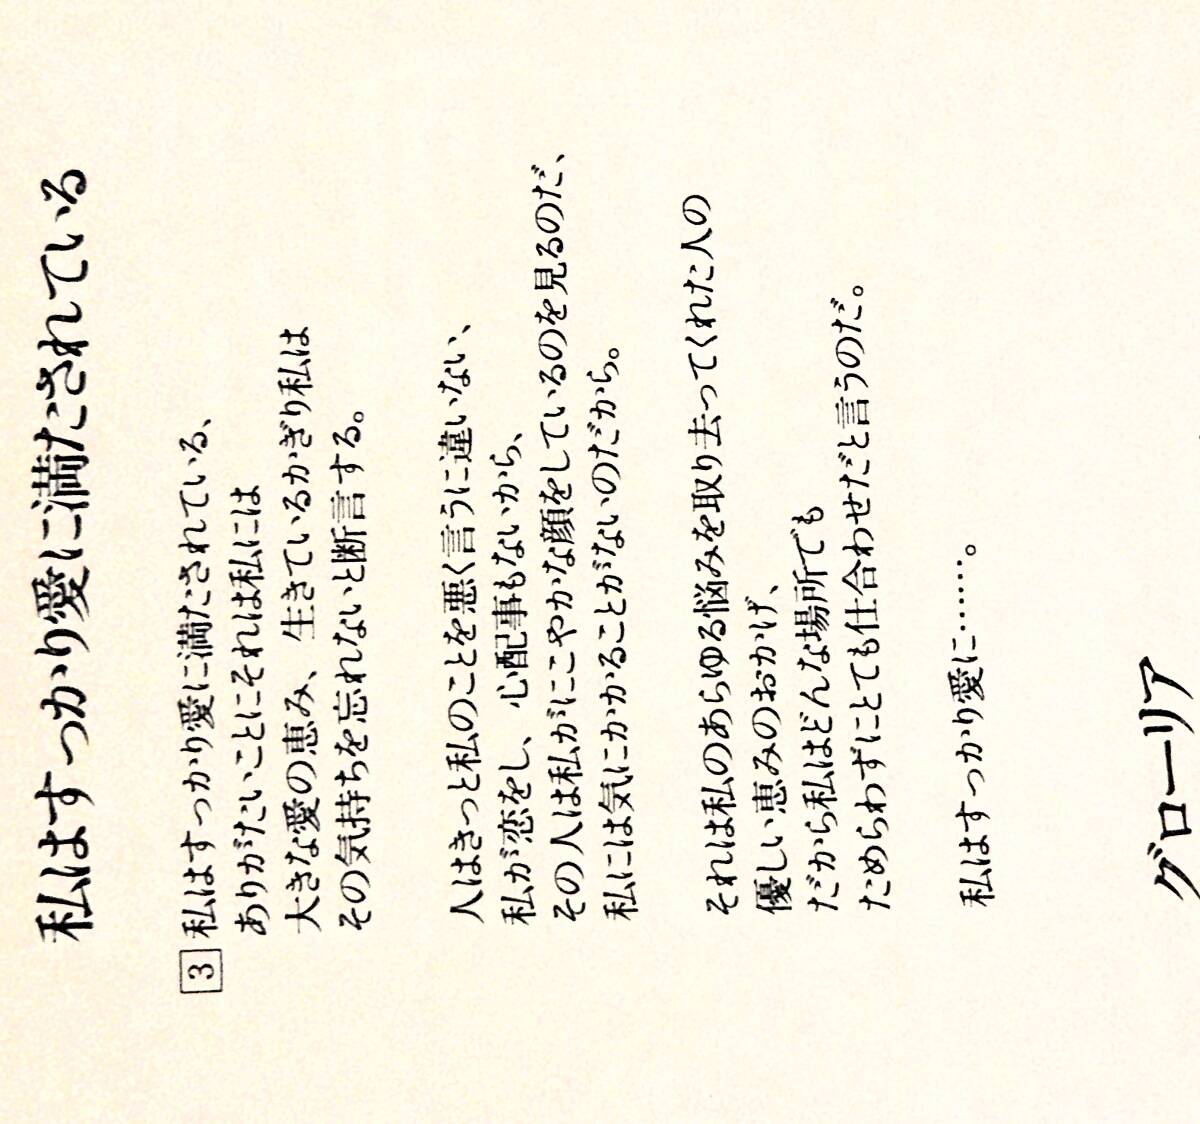 私はすっかり愛に満たされている
3 私はすっかり愛に満たされている、
ありがたいことにそれは私には
大きな愛の恵み、生きているかぎり私は
その気持ちを忘れないと断言する。
人はきっと私のことを悪く言うに違いない、
私が恋をし、心配事もないから、
その人は私がにこやかな顔をしているのを見るのだ、
私には気にかかることがないのだから。
それは私のあらゆる悩みを取り去ってくれた人の
優しい恵みのおかげ、
だから私はどんな場所でも
ためらわずにとても仕合わせだと言うのだ。
私はすっかり愛に……。
グローリア